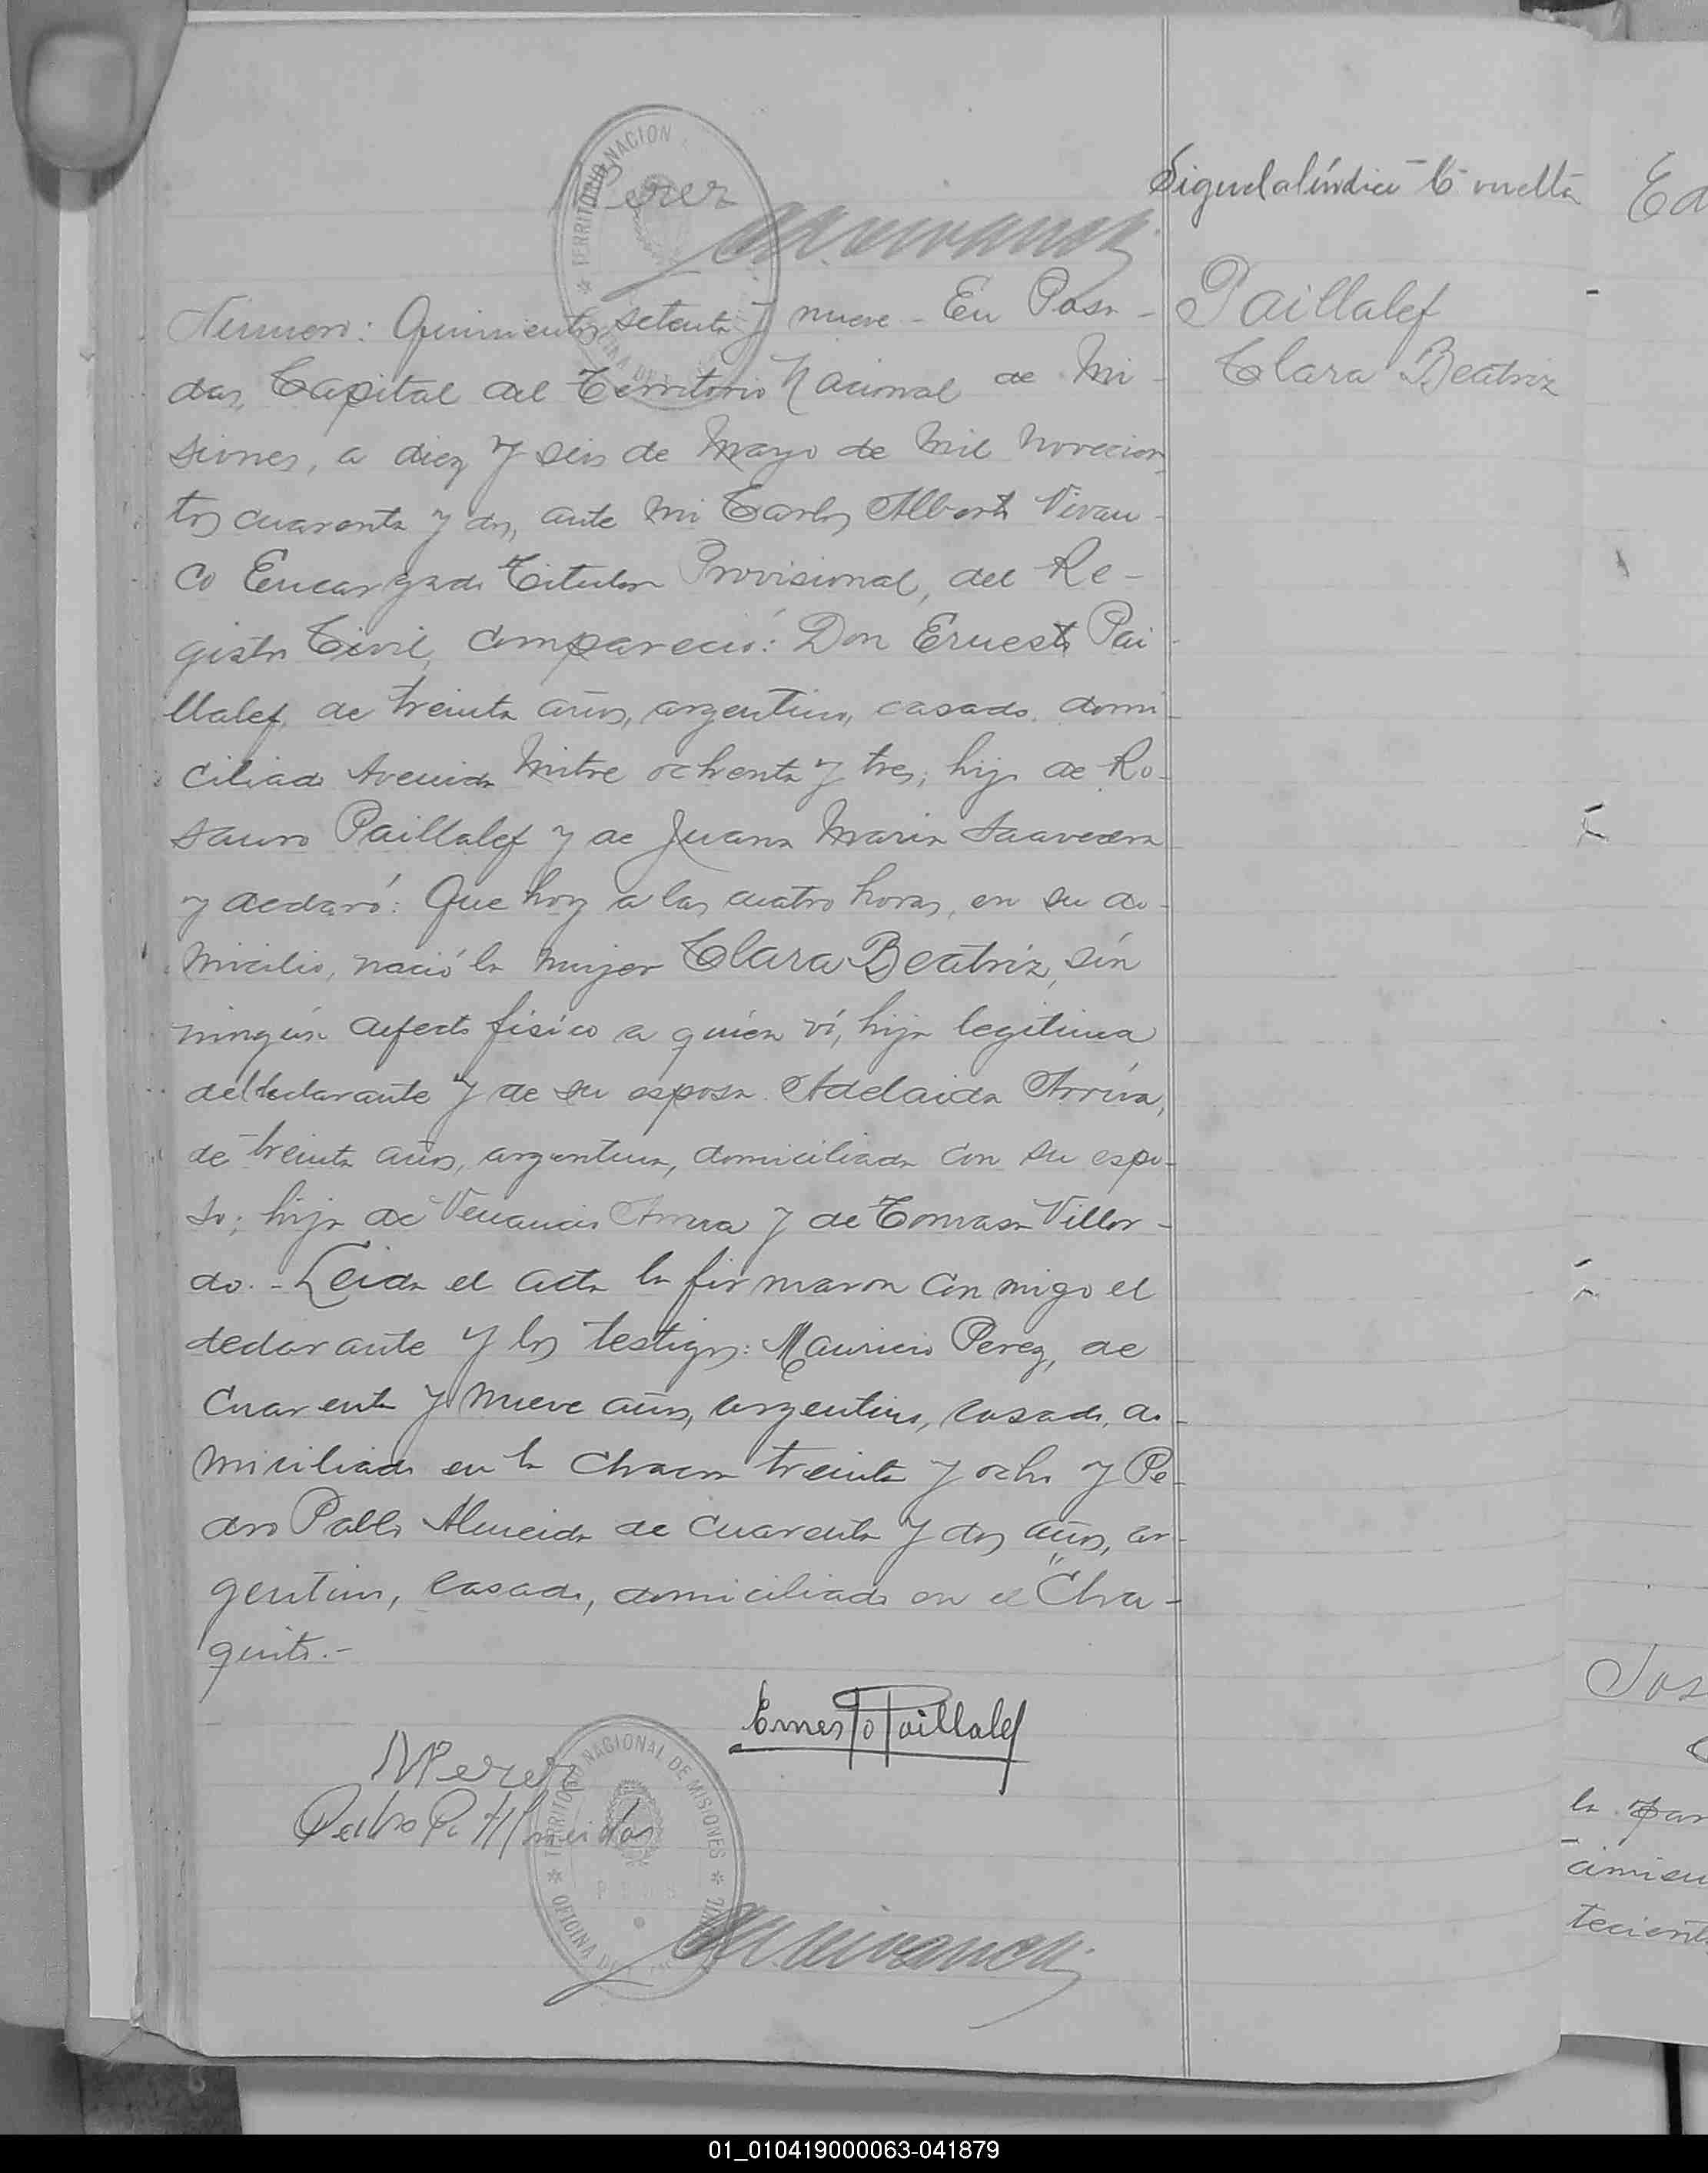 TERRITORIO NACION
Perez
Sigue al índice 6 vuelta
Paillalef
Clara Beatriz
Número: Quinientos setenta y nueve - En Posa-
das, Capital del Territorio Nacional de Mi-
siones, a diez y seis de Mayo de mil novecien
tos cuarenta y dos, ante mi Carlos Alberto Vivan-
co Encargado Titular Provisional, del Re-
gistro Civil, compareció: Don Ernesto Pai-
llalef, de treinta años, argentino, casado, domi-
ciliado Avenida Mitre ochenta y tres, hijo de Ro-
sauro Paillalef y de Juana Maria Saavedra
y declaró: Que hoy a las cuatro horas, en su do-
micilio, nació la mujer Clara Beatriz, sin
ningún defecto físico a quien ví, hija legitima
del declarante y de su esposa Adelaida Arrua,
de treinta años, argentina, domiciliada con su espo-
so; hija de Venancio Arrua y de Tomasa Villor-
do. - Leida el acta la firmaron conmigo el
declarante y los testigos: Mauricio Perez, de
cuarenta y nueve años, argentino, casado, do-
miciliado en la chacra treinta y ocho y Pe-
dro Pablo Almeida de cuarenta y dos años, ar-
gentino, casado, domiciliado en el "Cha-
quito.-
Ernesto Paillalef
MPerez
Pedro P. Almeida
TERRITORIO NACIONAL DE MISIONES
OFICINA DE
Ed
Jos
la par
cimien
tecient
01_010419000063-041879